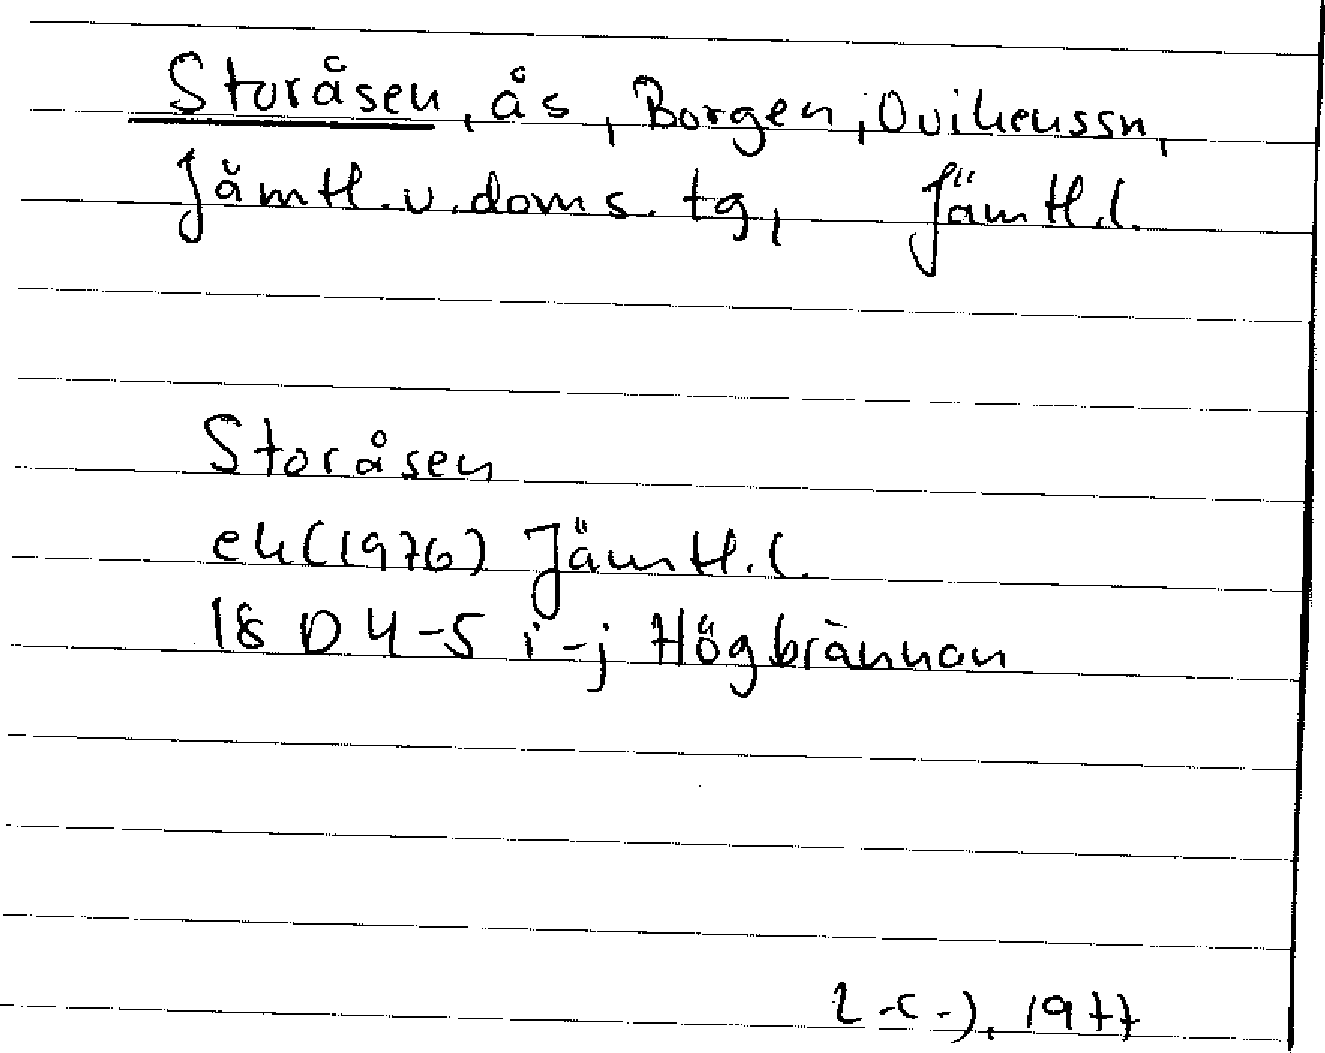 Storåsen, ås, Borgen, Ovikenssn,
Jämtl. v. doms. tg, Jämtl.l.
Storåsen
ek (1976) Jämtl.l.
18 D 4-5 i-j Högbrännan
1977